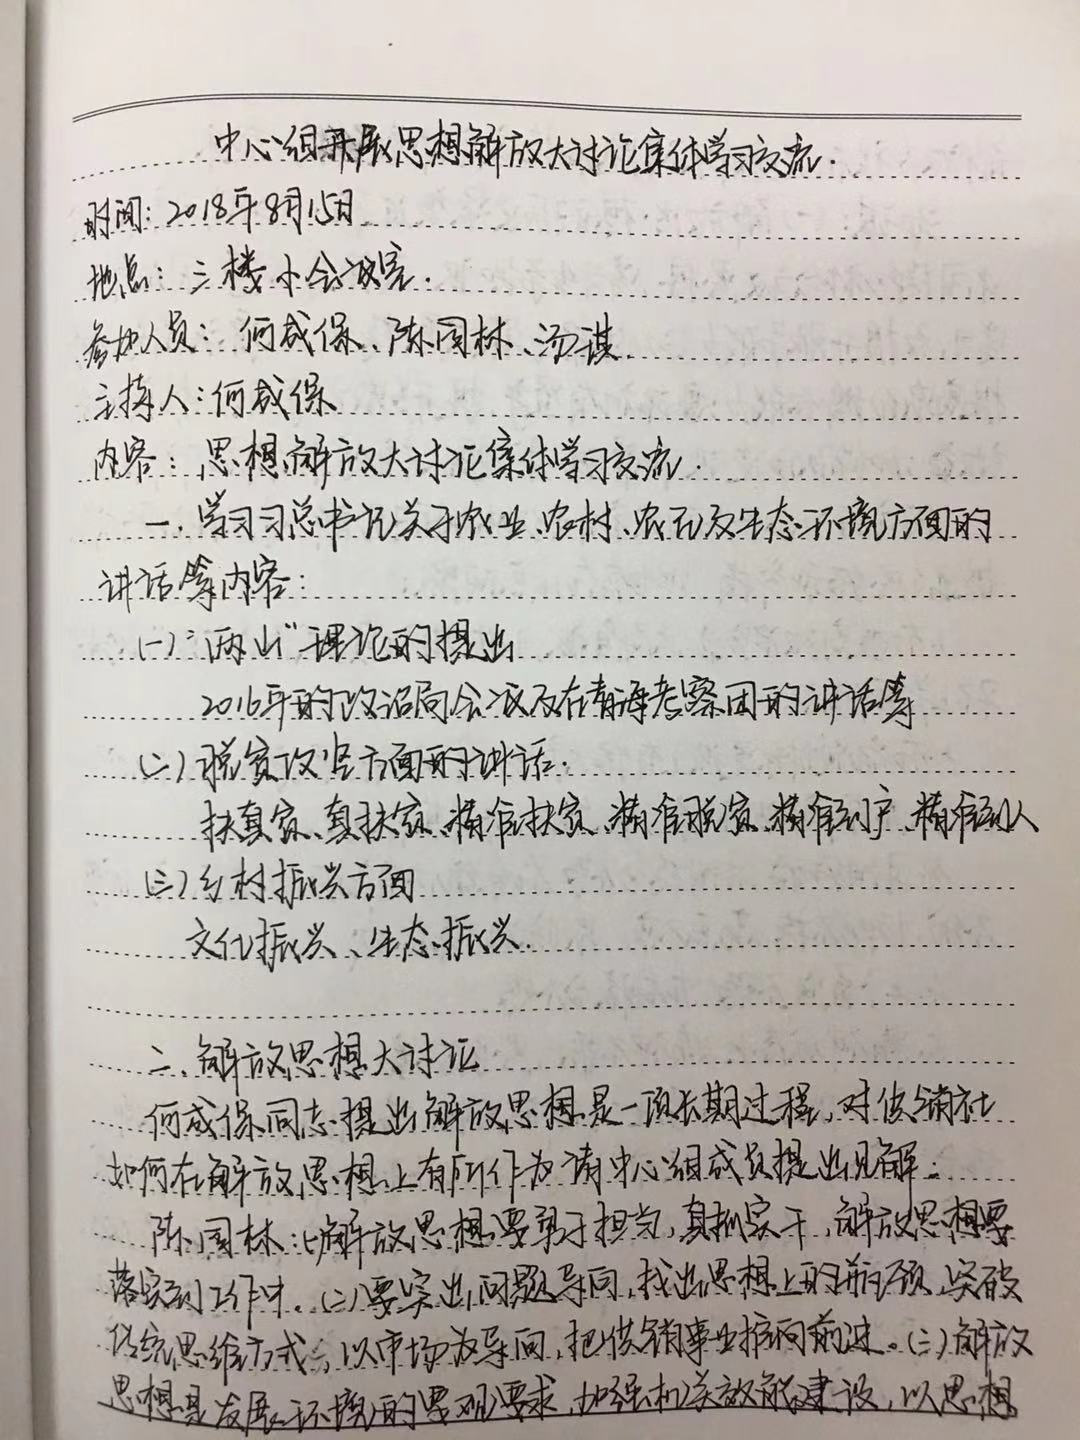 中心组开展思想解放大讨论集体学习交流.
时间: 2018年8月15日
地点: 三楼小会议室.
参加人员: 何成保、陈国林、汤谋.
主持人: 何成保
内容: 思想解放大讨论集体学习交流.
一. 学习习总书记关于农业、农村、农民及生态环境方面的
讲话等内容:
(一)"两山"理论的提出
2016年的政治局会议及在青海考察团的讲话等
(二)脱贫攻坚方面的讲话.
扶真贫、真扶贫、精准扶贫、精准脱贫、精准到户、精准到人
(三)乡村振兴方面
文化振兴、生态振兴.
二. 解放思想大讨论
何成保同志提出解放思想是一项长期过程, 对供销社
如何在解放思想上有所作为请中心组成员提出见解:
陈国林: (一)解放思想要勇于担当, 真抓实干, 解放思想要
落实到工作中. (二)要突出问题导向, 找出思想上的瓶颈, 突破
传统思维方式, 以市场为导向, 把供销事业推向前进。(三)解放
思想是发展环境的要求, 加强机关效能建设, 以思想